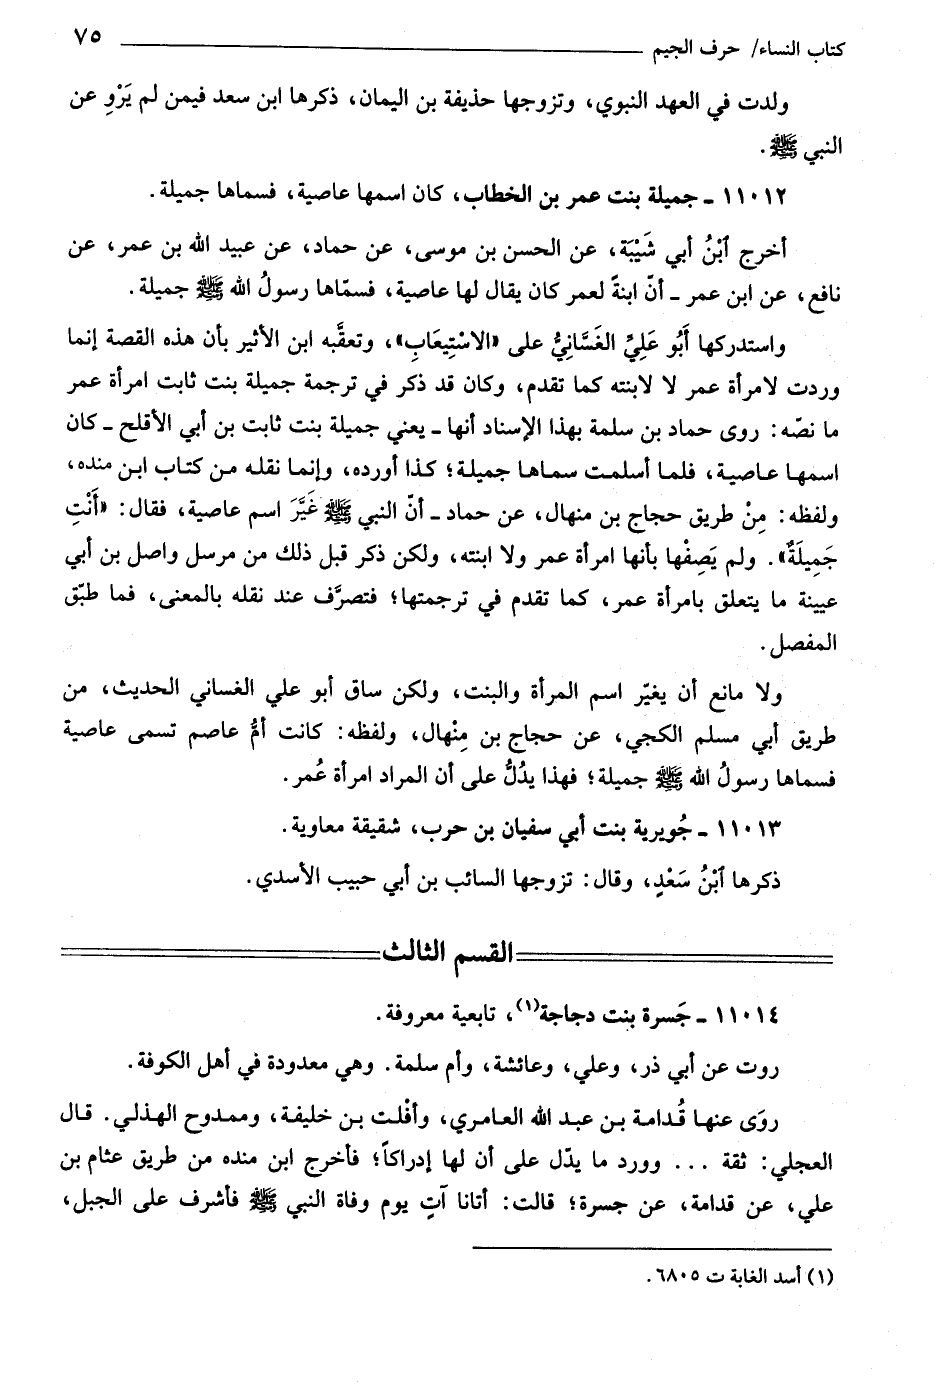 كتاب النساء/ حرف الجيم ٧٥
ولدت في العهد النبوي، وتزوجها حذيفة بن اليمان، ذكرها ابن سعد فيمن لم يَرْوِ عن
النبي ﷺ.
١١٠١٢ ـ جميلة بنت عمر بن الخطاب، كان اسمها عاصية، فسماها جميلة.
أخرج ٱبْنُ أبي شَيْبَة، عن الحسن بن موسى، عن حماد، عن عبيد الله بن عمر، عن
نافع، عن ابن عمر ـ أنّ ابنةً لعمر كان يقال لها عاصية، فسمّاها رسولُ الله ﷺ جميلة.
واستدركها أَبُو عَلِيٍّ الغَسَّانِيُّ على «الاسْتِيعَابِ»، وتعقَّبه ابن الأثير بأن هذه القصة إنما
وردت لامرأة عمر لا لابنته كما تقدم، وكان قد ذكر في ترجمة جميلة بنت ثابت امرأة عمر
ما نصّه: روى حماد بن سلمة بهذا الإسناد أنها ـ يعني جميلة بنت ثابت بن أبي الأقلح ـ كان
اسمها عاصية، فلما أسلمت سماها جميلة؛ كذا أورده، وإنما نقله من كتاب ابن منده،
ولفظه: مِنْ طريق حجاج بن منهال، عن حماد ـ أنّ النبي ﷺ غَيَّرَ اسم عاصية، فقال: «أَنْتِ
جَمِيلَةٌ». ولم يَصِفْها بأنها امرأة عمر ولا ابنته، ولكن ذكر قبل ذلك من مرسل واصل بن أبي
عيينة ما يتعلق بامرأة عمر، كما تقدم في ترجمتها؛ فتصرَّف عند نقله بالمعنى، فما طبّق
المفصل.
ولا مانع أن يغيّر اسم المرأة والبنت، ولكن ساق أبو علي الغساني الحديث، من
طريق أبي مسلم الكجي، عن حجاج بن مِنْهال، ولفظه: كانت أمُّ عاصم تسمى عاصية
فسماها رسولُ الله ﷺ جميلة؛ فهذا يدُلُّ على أن المراد امرأة عُمر.
١١٠١٣ ـ جُويرية بنت أبي سفيان بن حرب، شقيقة معاوية.
ذكرها ٱبْنُ سَعْدٍ، وقال: تزوجها السائب بن أبي حبيب الأسدي.
القسم الثالث
١١٠١٤ ـ جَسرة بنت دجاجة(١)، تابعية معروفة.
روت عن أبي ذر، وعلي، وعائشة، وأم سلمة. وهي معدودة في أهل الكوفة.
روَى عنها قُدامة بن عبد الله العامري، وأفْلت بن خليفة، وممدوح الهذلي. قال
العجلي: ثقة ... وورد ما يدّل على أن لها إدراكاً؛ فأخرج ابن منده من طريق عثام بن
علي، عن قدامة، عن جسرة؛ قالت: أتانا آتٍ يوم وفاة النبي ﷺ فأشرف على الجبل،
(١) أسد الغابة ت ٦٨٠٥.